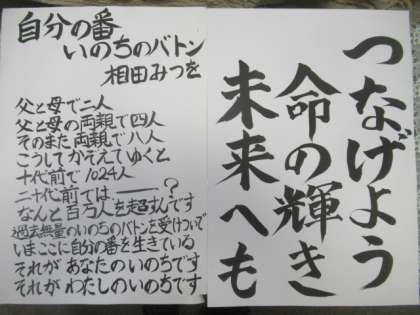 自分の番
いのちのバトン
相田みつを
父と母で二人
父と母の両親で四人
そのまた両親で八人
こうしてかぞえてゆくと
十代前で1024人
二十代前では―――?
なんと百万人を超すんです
過去無量のいのちのバトンを受けついで
いまここに自分の番を生きている
それがあなたのいのちです
それがわたしのいのちです
つなげよう
命の輝き
未来へも